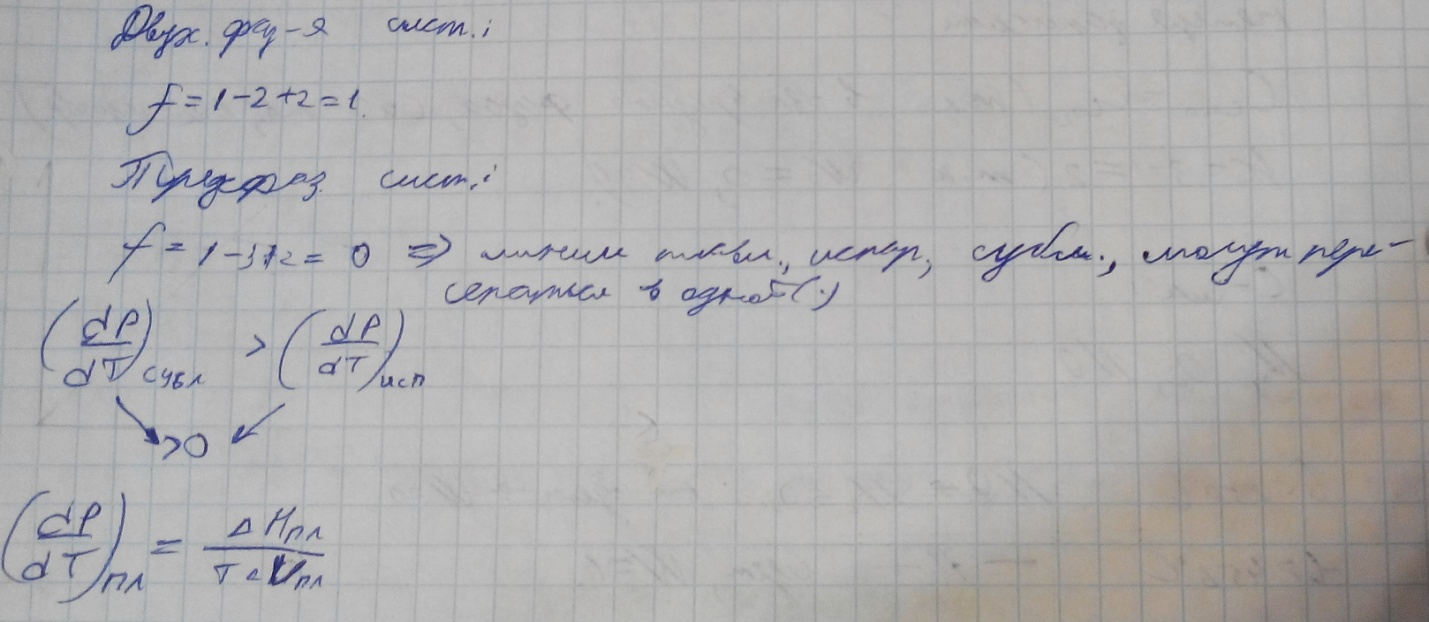 Двух. фаз-я сист.:
f = 1 - 2 + 2 = 1
Трехфаз. сист.:
f = 1 - 3 + 2 = 0 ⇒ линии плавл., испар., субл., могут пере-
секаться в одной (·)
(dP/dT)субл > (dP/dT)исп
>0
(dP/dT)пл = ΔHпл / TΔVпл